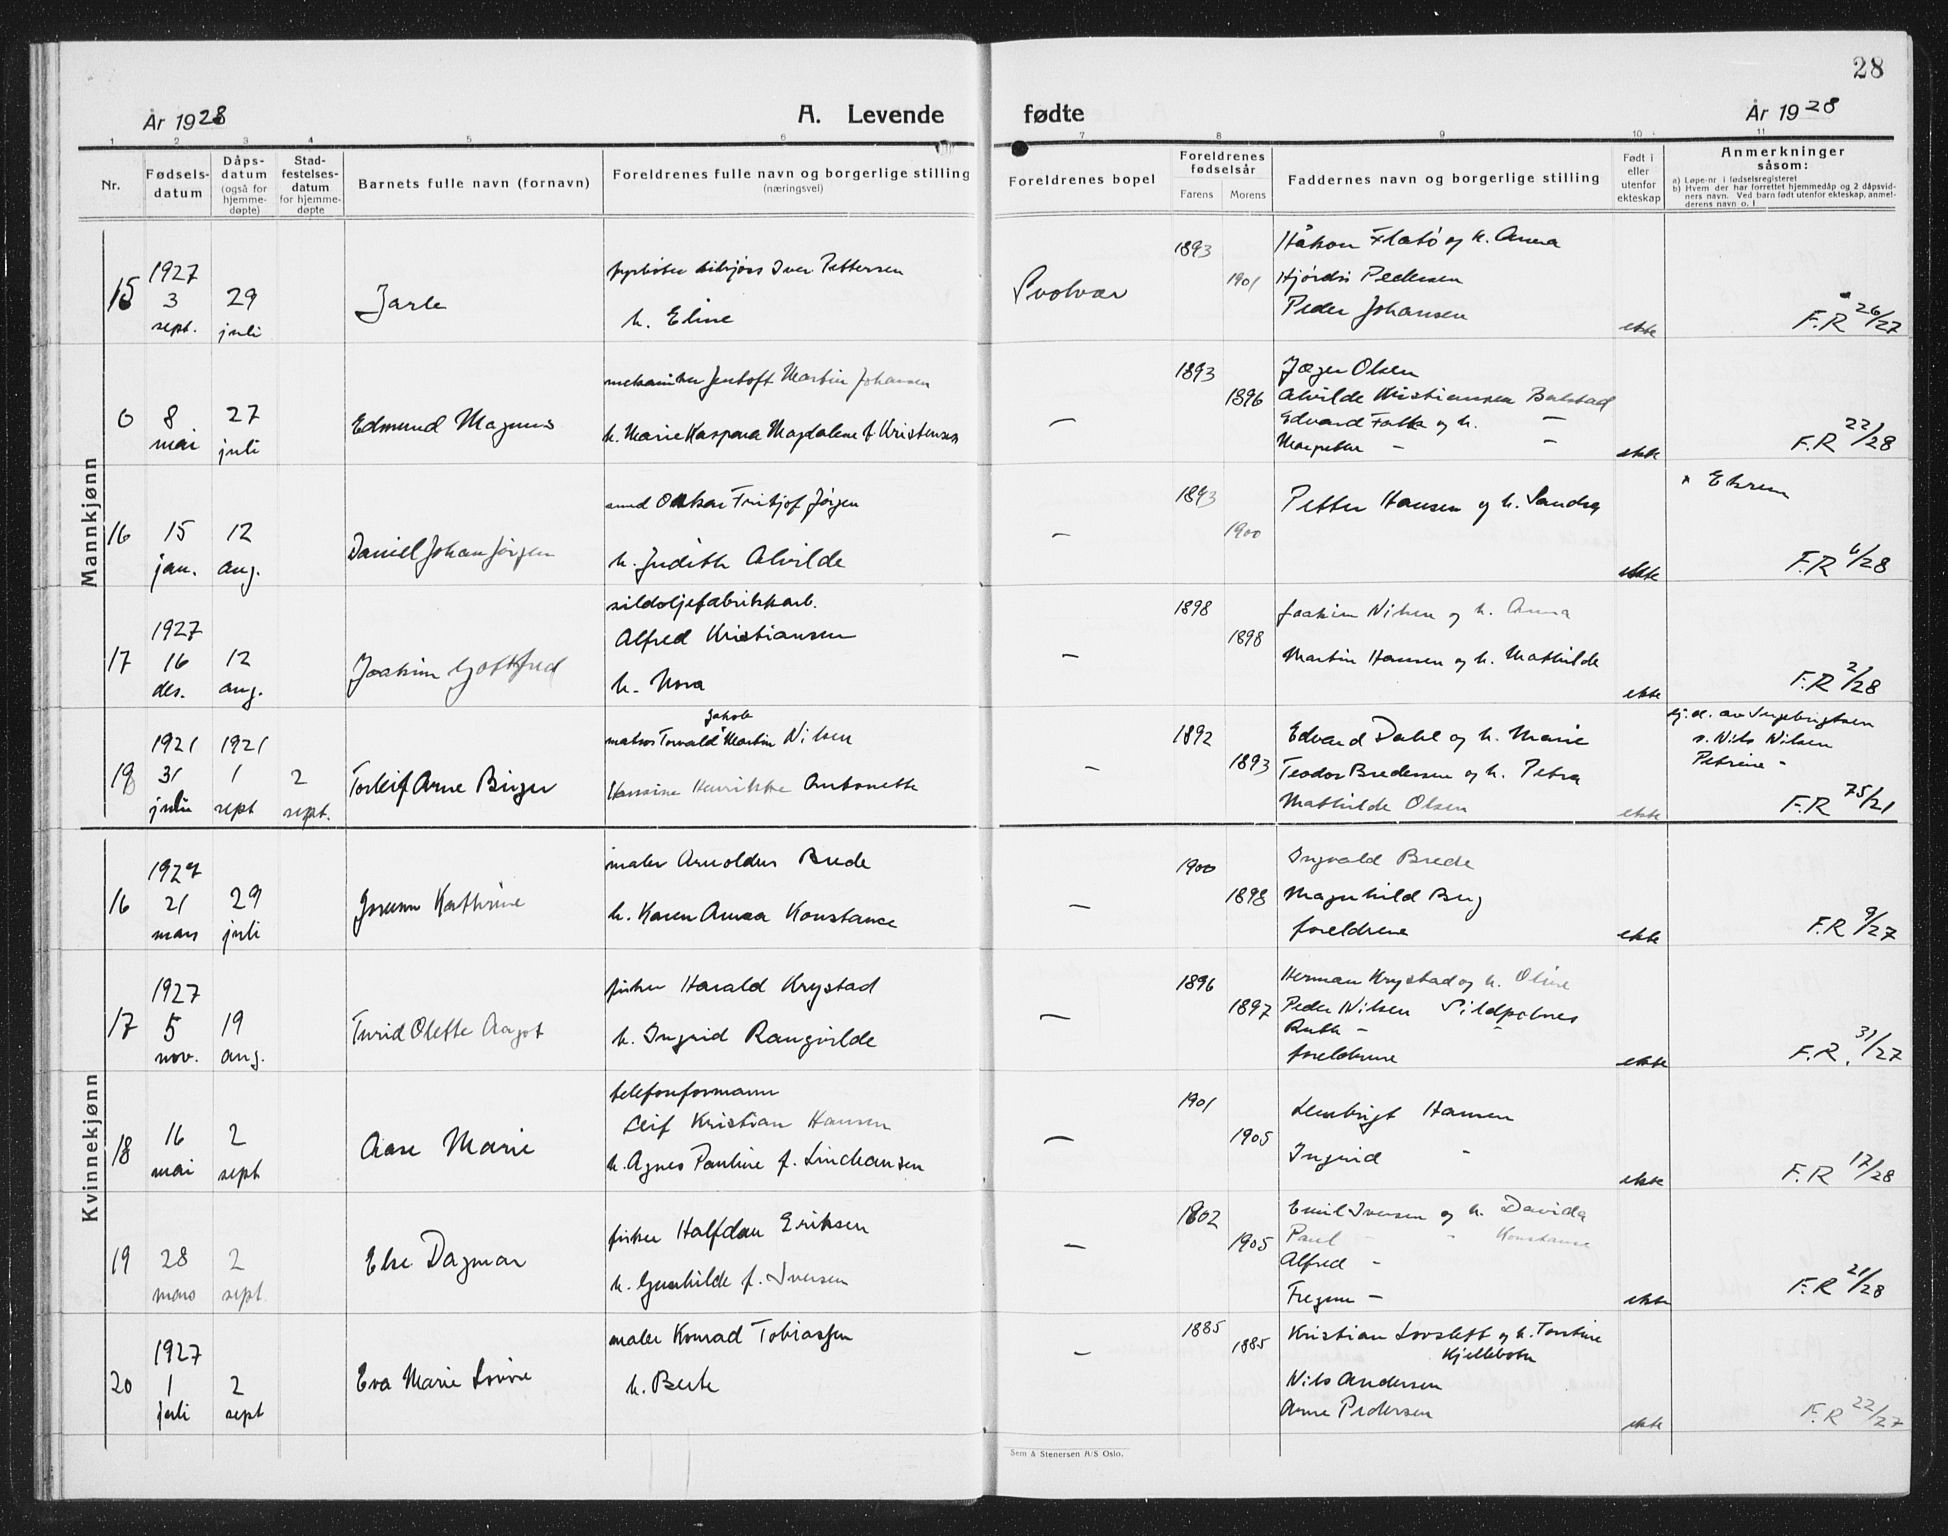 28
År 1928
A. Levende
fødte
År 1928
1 2 3 4 5 6 7 8 9 10 11
Nr.
Fødsels-
datum
Dåps-
datum
(også for
hjemme-
døpte)
Stad-
festelses-
datum
for hjemme-
døpte
Barnets fulle navn (fornavn)
Foreldrenes fulle navn og borgerlige stilling
(næringsvel)
Foreldrenes bopel
Foreldrenes
fødselsår
Farens
Morens
Faddernes navn og borgerlige stilling
Født i
eller
utenfor
ekteskap
Anmerkninger
såsom:
a) Løpe-nr i fødselsregisteret
b) Hvem der har forrettet hjemmedåp og 2 dåpsvid-
ners navn. Ved barn født utenfor ekteskap, anmel-
derens navn o. l
Mannkjønn
15
1927
3
sept.
29
juli
Jarle
Iver Pettersen
h. Eline
Svolvær
1893
1901
Håkon Flatö og h. Anna
Hjördis Pedersen
Peder Johansen
ekte
F.R 26/27
0
8
mai
27
juli
Edmund Magnus
mekaniker Jentoft Martin Johansen
h. Marie Kaspara Magdalene f. Kristensen
—
1893
1896
Jæger Olsen
Alvilde Kristiansen Balstad
Edvard Falk og h. —
Margrethe — —
ekte
F.R 22/28
16
15
jan.
12
aug.
Daniel Johan Jörgen
smed Oskar Fritjof Jörgen
h. Judith Alvilde
—
1893
1900
Petter Hansen og h. Sandra
ekte
× Ekrem
F.R 6/28
17
1927
16
des.
12
aug.
Joakim Gottfred
sildoljefabrikkarb.
Alfred Kristiansen
h. Nora
—
1898
1898
Joakim Nilsen og h. Anna
Martin Hansen og h. Mathilde
ekte
F.R 2/28
18
1921
31
juli
1921
1
sept
2
sept.
Torleif Arne Birger
Jakob
matros Torvald Martin Nilsen
Hansine Henrikke Antonette
—
1892
1893
Edvard Dahl og h. Marie
Teodor Bredersen og h. Petra
Mathilde Olsen
ekte
hj. d. av Ingebrigtsen
v. Nils Nilsen
Petrine -
F.R 75/21
Kvinnekjønn
16
1927
21
mars
29
juli
Jorunn Kathrine
maler Arnoldus Brede
h. Karen Anna Konstance
—
1900
1898
Ingvald Brede
Magnhild Berg
foreldrene
ekte
F.R 9/27
17
1927
5
nov.
19
aug.
Turid Olette Aagot
fisker Harald Krystad
h. Ingrid Rangvilde
—
1896
1897
Herman Krystad og h. Oline
Peder Nilsen Sildpolnes
Ruth — —
foreldrene
ekte
F.R. 31/27
18
16
mai
2
sept
Aase Marie
telefonformann
Leif Kristian Hansen
h. Agnes Pauline f. Lindhansen
—
1901
1905
Hansen
Ingrid -
ekte
F.R 17/28
19
28
mars
2
sept.
Else Dagmar
fisker Halfdan Eriksen
h. Gunhilde f. Iversen
—
1902
1905
Emil Iversen og h. Davida
Paul - - Konstanse
Alfred -
—
ekte
F.R 21/28
20
1927
1
juli
2
sept
Eva Marie
maler Konrad Tobiassen
h. Berte
—
1885
1885
Kristian og h.
Kjellebotn
Nils Andersen
Arne Pedersen
ekte
F.R 22/27
Sem & Stenersen A/S Oslo.